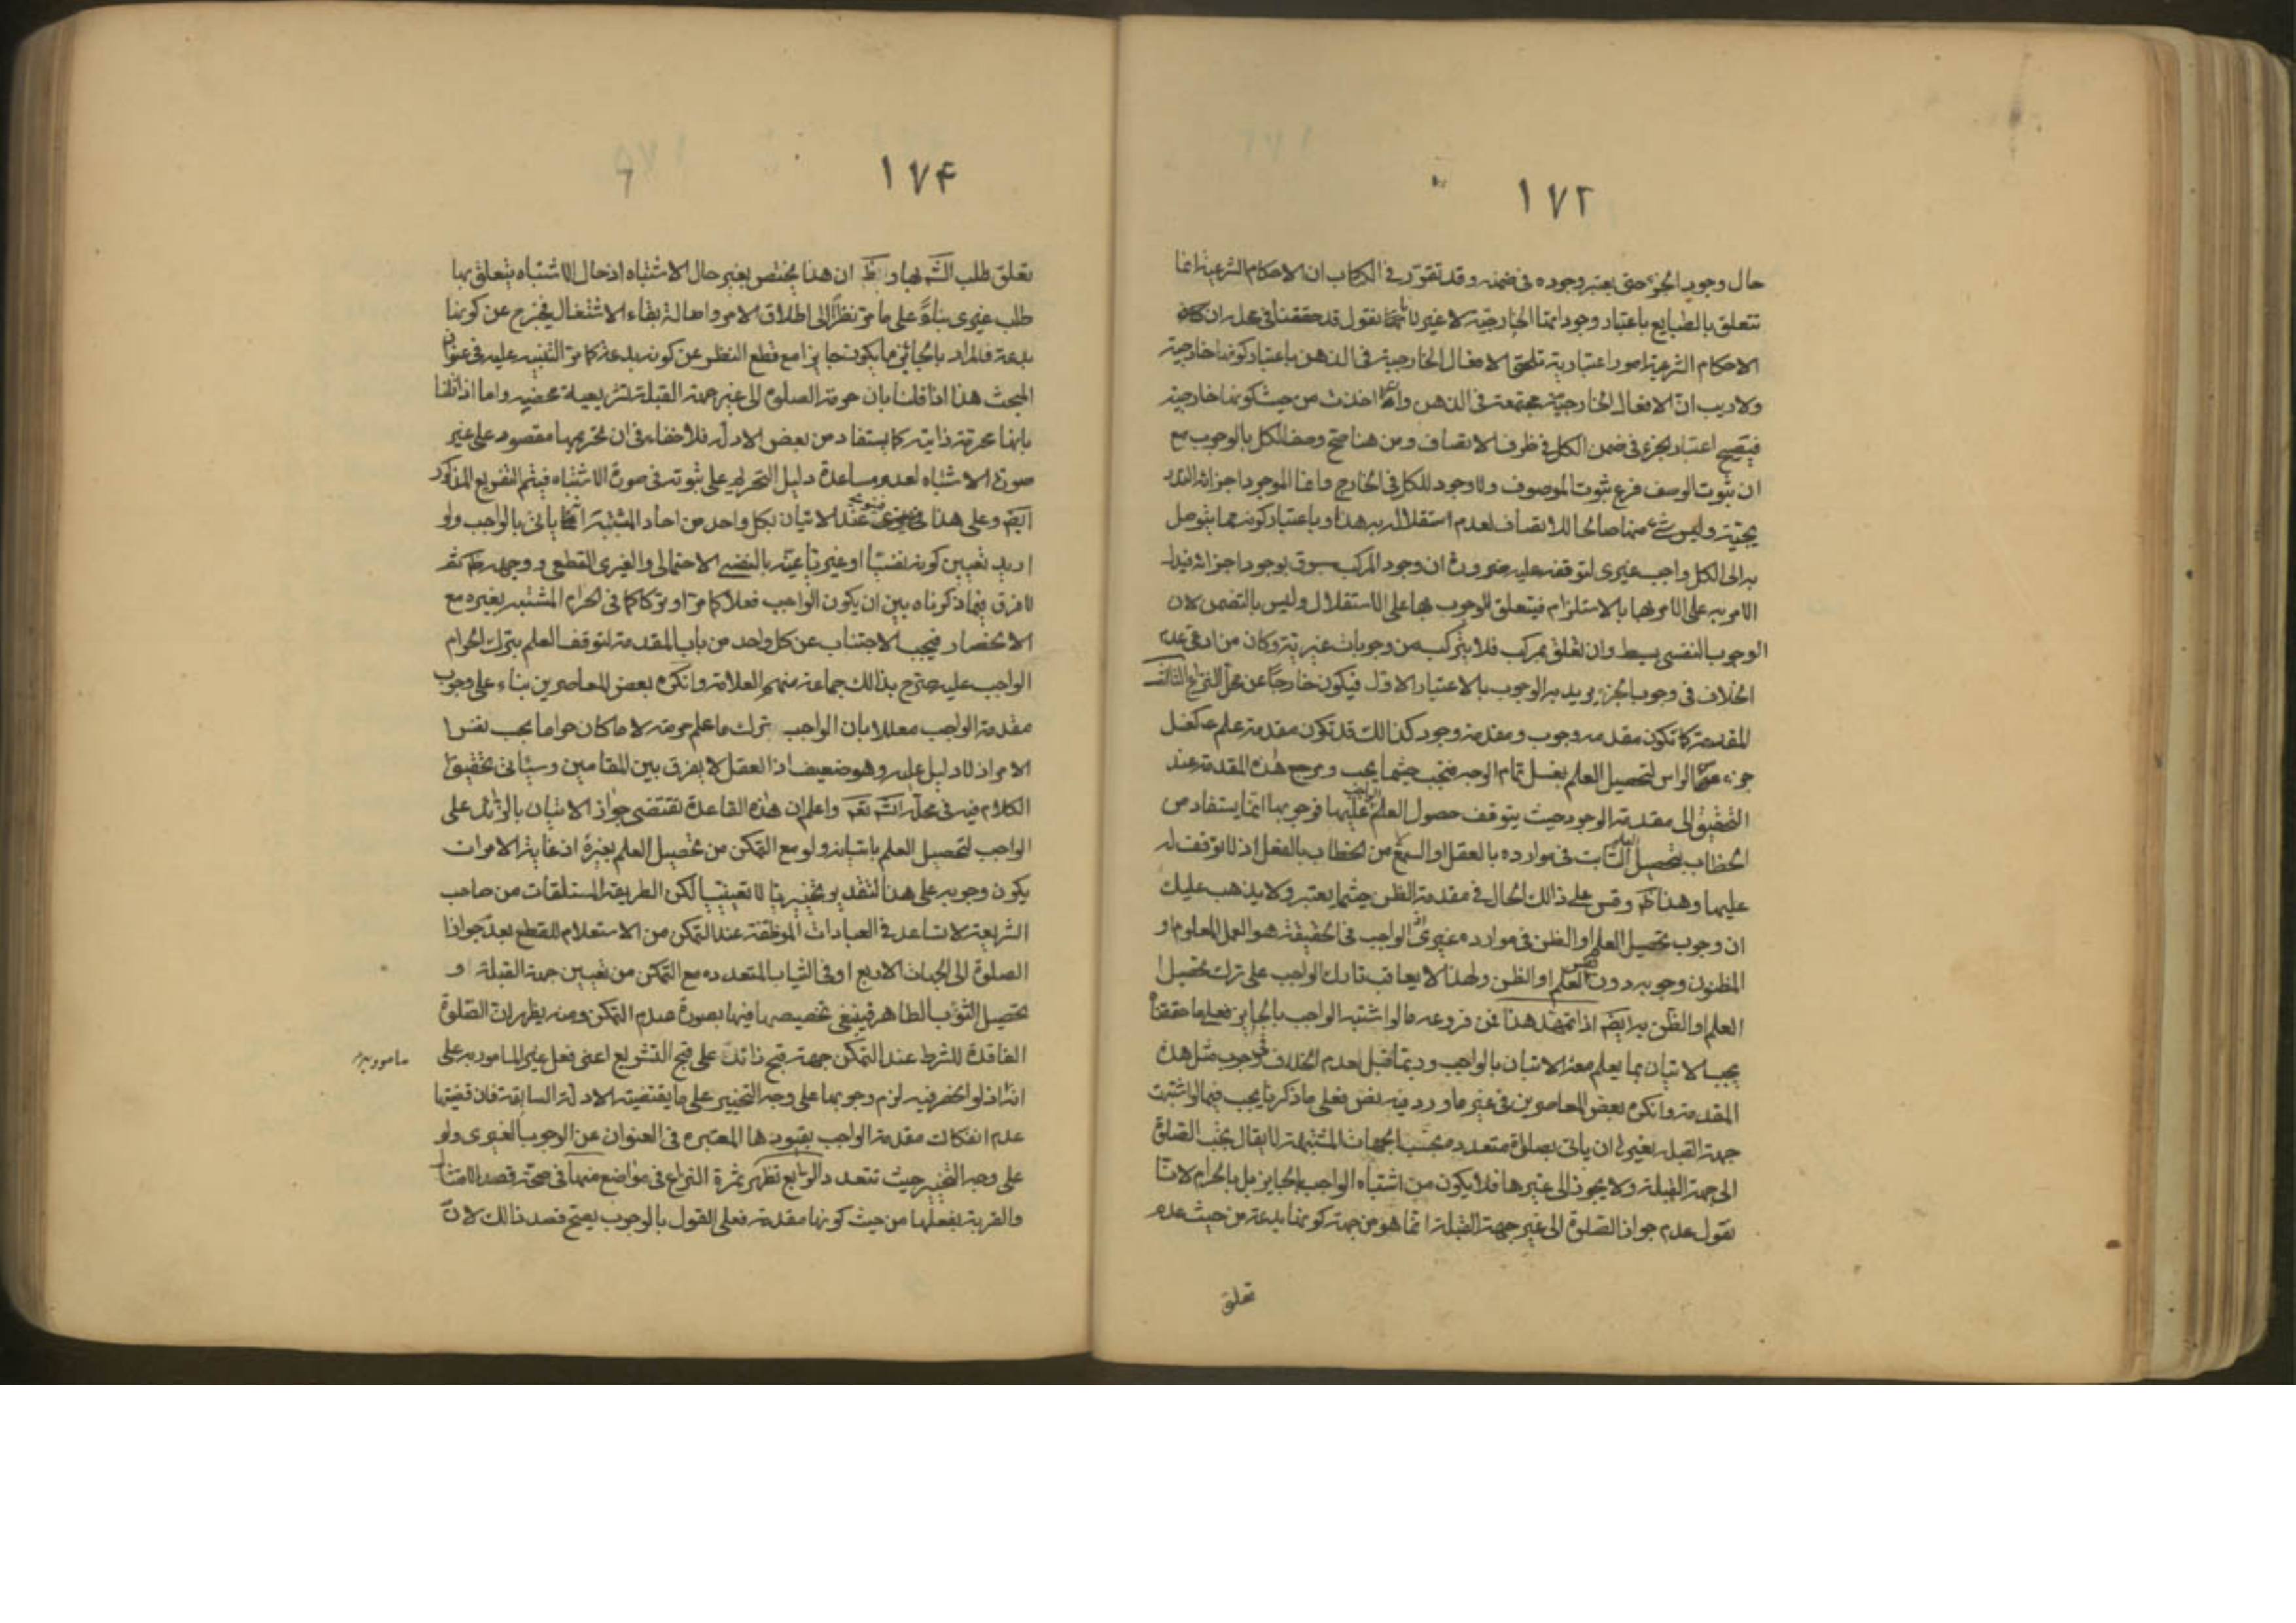 ١٧٢
حال وجود الجزء حتى يعتبر وجوده فى ضمنه وقد تقرر فى الكتاب ان الاحكام الشرعية انما
تتعلق بالطبايع باعتبار وجوداتها الخارجية لا غير لانا نقول قد حققنا فى محله ان
الاحكام الشرعية امور اعتبارية تلحق الافعال الخارجية فى الذهن باعتبار كونها خارجية
ولا ريب ان الافعال الخارجية مجتمعة فى الذهن وان اخذت من حيث كونها خارجية
فيتصح اعتبار الجزء فى ضمن الكل فى ظرف الاتصاف ومن هنا صح وصف الكل بالوجوب مع
ان ثبوت الوصف فرع ثبوت الموصوف ولا وجود للكل فى الخارج وانما الموجود اجزائه
وليس شىء منها صالحا للاتصاف لعدم استقلاله به هذا وباعتبار كونه مما يتوصل
به الى الكل واجب غيرى لتوقفه عليه ضرورة ان وجود المركب مسبوق بوجود اجزائه فيدل
الامر به على الامر بها بالاستلزام فيتعلق الوجوب بها على الاستقلال وليس بالتضمن لان
الوجوب النفسى بسيط وان تعلق بمركب فلا يتركب من وجوبات غيرية وكان من ادعى عدم
الخلاف فى وجوب الجزء يريد به الوجوب بالاعتبار الاول فيكون خارجا عن محل النزاع الثالث
المقدمة كما تكون مقدمة وجوب ومقدمة وجود كذلك قد تكون مقدمة علم كغسل
جزء من الراس لتحصيل العلم بغسل تمام الوجه فتجب حيثما يجب ومرجع هذه المقدمة عند
التحقيق الى مقدمة الوجود حيث يتوقف حصول العلم الواجب عليها فوجوبها انما يستفاد من
الخطاب بتحصيل العلم الثابت فى موارده بالعقل او السمع لا من الخطاب بالفعل اذ لا توقف له
عليها وهذا ظ وقس على ذلك الحال فى مقدمة الظن حيثما يعتبر ولا يذهب عليك
ان وجوب تحصيل العلم او الظن فى موارده غيرى اذ الواجب فى الحقيقة هو العمل المعلوم او
المظنون وجوبه دون نفس العلم او الظن ولهذا لا يعاقب تارك الواجب على ترك تحصيل
العلم او الظن به ايضا اذا تمهد هذا فمن فروعه ما لو اشتبه الواجب بالجايز فعلى ما حققنا
يجب الاتيان بما يعلم معه الاتيان بالواجب وربما قيل بعدم الخلاف فى وجوب مثل هذه
المقدمة وانكره بعض المعاصرين فى غير ما ورد فيه نص فعلى ما ذكرنا يجب فيما لو اشتبهت
جهة القبلة بغيرها ان ياتى بصلوة متعددة بحسب الجهات المشتبهة لا يقال يجب الصلوة
الى جهة القبلة ولا يجوز الى غيرها فلا يكون من اشتباه الواجب بالجايز بل بالحرام لانا
نقول عدم جواز الصلوة الى غير جهة القبلة انما هو من جهة كونها بدعة من حيث عدم
تعلق
١٧۴
تعلق طلب الشم بها وظ ان هذا يختص بغير حال الاشتباه اذ حال الاشتباه يتعلق بها
طلب غيرى بناء على ما مر نظرا الى اطلاق الامر واصالة بقاء الاشتغال فيخرج عن كونها
بدعة فالمراد بالجائز ما يكون جايزا مع قطع النظر عن كونه بدعة كما مر التنبيه عليه فى عنوان
المبحث هذا اذا قلنا بان حرمة الصلوة الى غير جهة القبلة تشريعية محضة واما اذا قلنا
بانها محرمة ذاتية كما يستفاد من بعض الادلة فلا خفاء فى ان تحريمها مقصور على غير
صورة الاشتباه لعدم مساعدة دليل التحريم على ثبوته فى صورة الاشتباه فيتم التفريع المذكور
ايضا وعلى هذا فينوى عند الاتيان بكل واحد من احاد المشتبهة انما ياتى بالواجب ولو
اريد تعيين كونه نفسيا او غيريا عينه بالنفسى الاحتمالى والغيرى القطعى ووجهه ظ ثم
لا فرق فيما ذكرناه بين ان يكون الواجب فعلا كما مر او تركا كما فى الحرام المشتبه بغيره مع
الانحصار فيجب الاجتناب عن كل واحد من باب المقدمة لتوقف العلم بترك الحرام
الواجب عليه صرح بذلك جماعة منهم العلامة وانكره بعض المعاصرين بناء على وجوب
مقدمة الواجب معللا بان الواجب ترك ما علم حرمته لا ما كان حراما بحسب نفس
الامر اذ لا دليل عليه وهو ضعيف اذ العقل لا يفرق بين المقامين وسياتى تحقيق
الكلام فيه فى محله انشم تعم واعلم ان هذه القاعدة تقتضى جواز الاتيان بالزائد على
الواجب لتحصيل العلم باتيانه ولو مع التمكن من تحصيل العلم بغيره اذ غاية الامر ان
يكون وجوبه على هذا التقدير تخييريا لا تعيينيا لكن الطريقة المستلقات من صاحب
الشريعة لا تساعد فى العبادات الموظفة عند التمكن من الاستعلام للقطع بعد جواز
الصلوة الى الجهات الاربع او فى الثياب المتعدده مع التمكن من تعيين جهة القبلة او
تحصيل الثوب الطاهر فينبغى تخصيصها فيها بصورة عدم التمكن ومنه يظهر ان الصلوة
الفاقدة للشرط عند التمكن جهة قبح زائد على قبح التشريع اعنى فعل غير المامور به على
مامور به
انه اذ لو انحصر فيه لزم وجوبها على وجه التخيير على ما يقتضيه الادلة السابقة فان قضيتها
عدم انفكاك مقدمة الواجب بقيودها المعتبرة فى العنوان عن الوجوب الغيرى ولو
على وجه التخيير حيث تتعدد الرابع تظهر ثمرة النزاع فى مواضع منها فى صحة قصد الامتثال
والقربة بفعلها من حيث كونها مقدمة فعلى القول بالوجوب يصح قصد ذلك لان